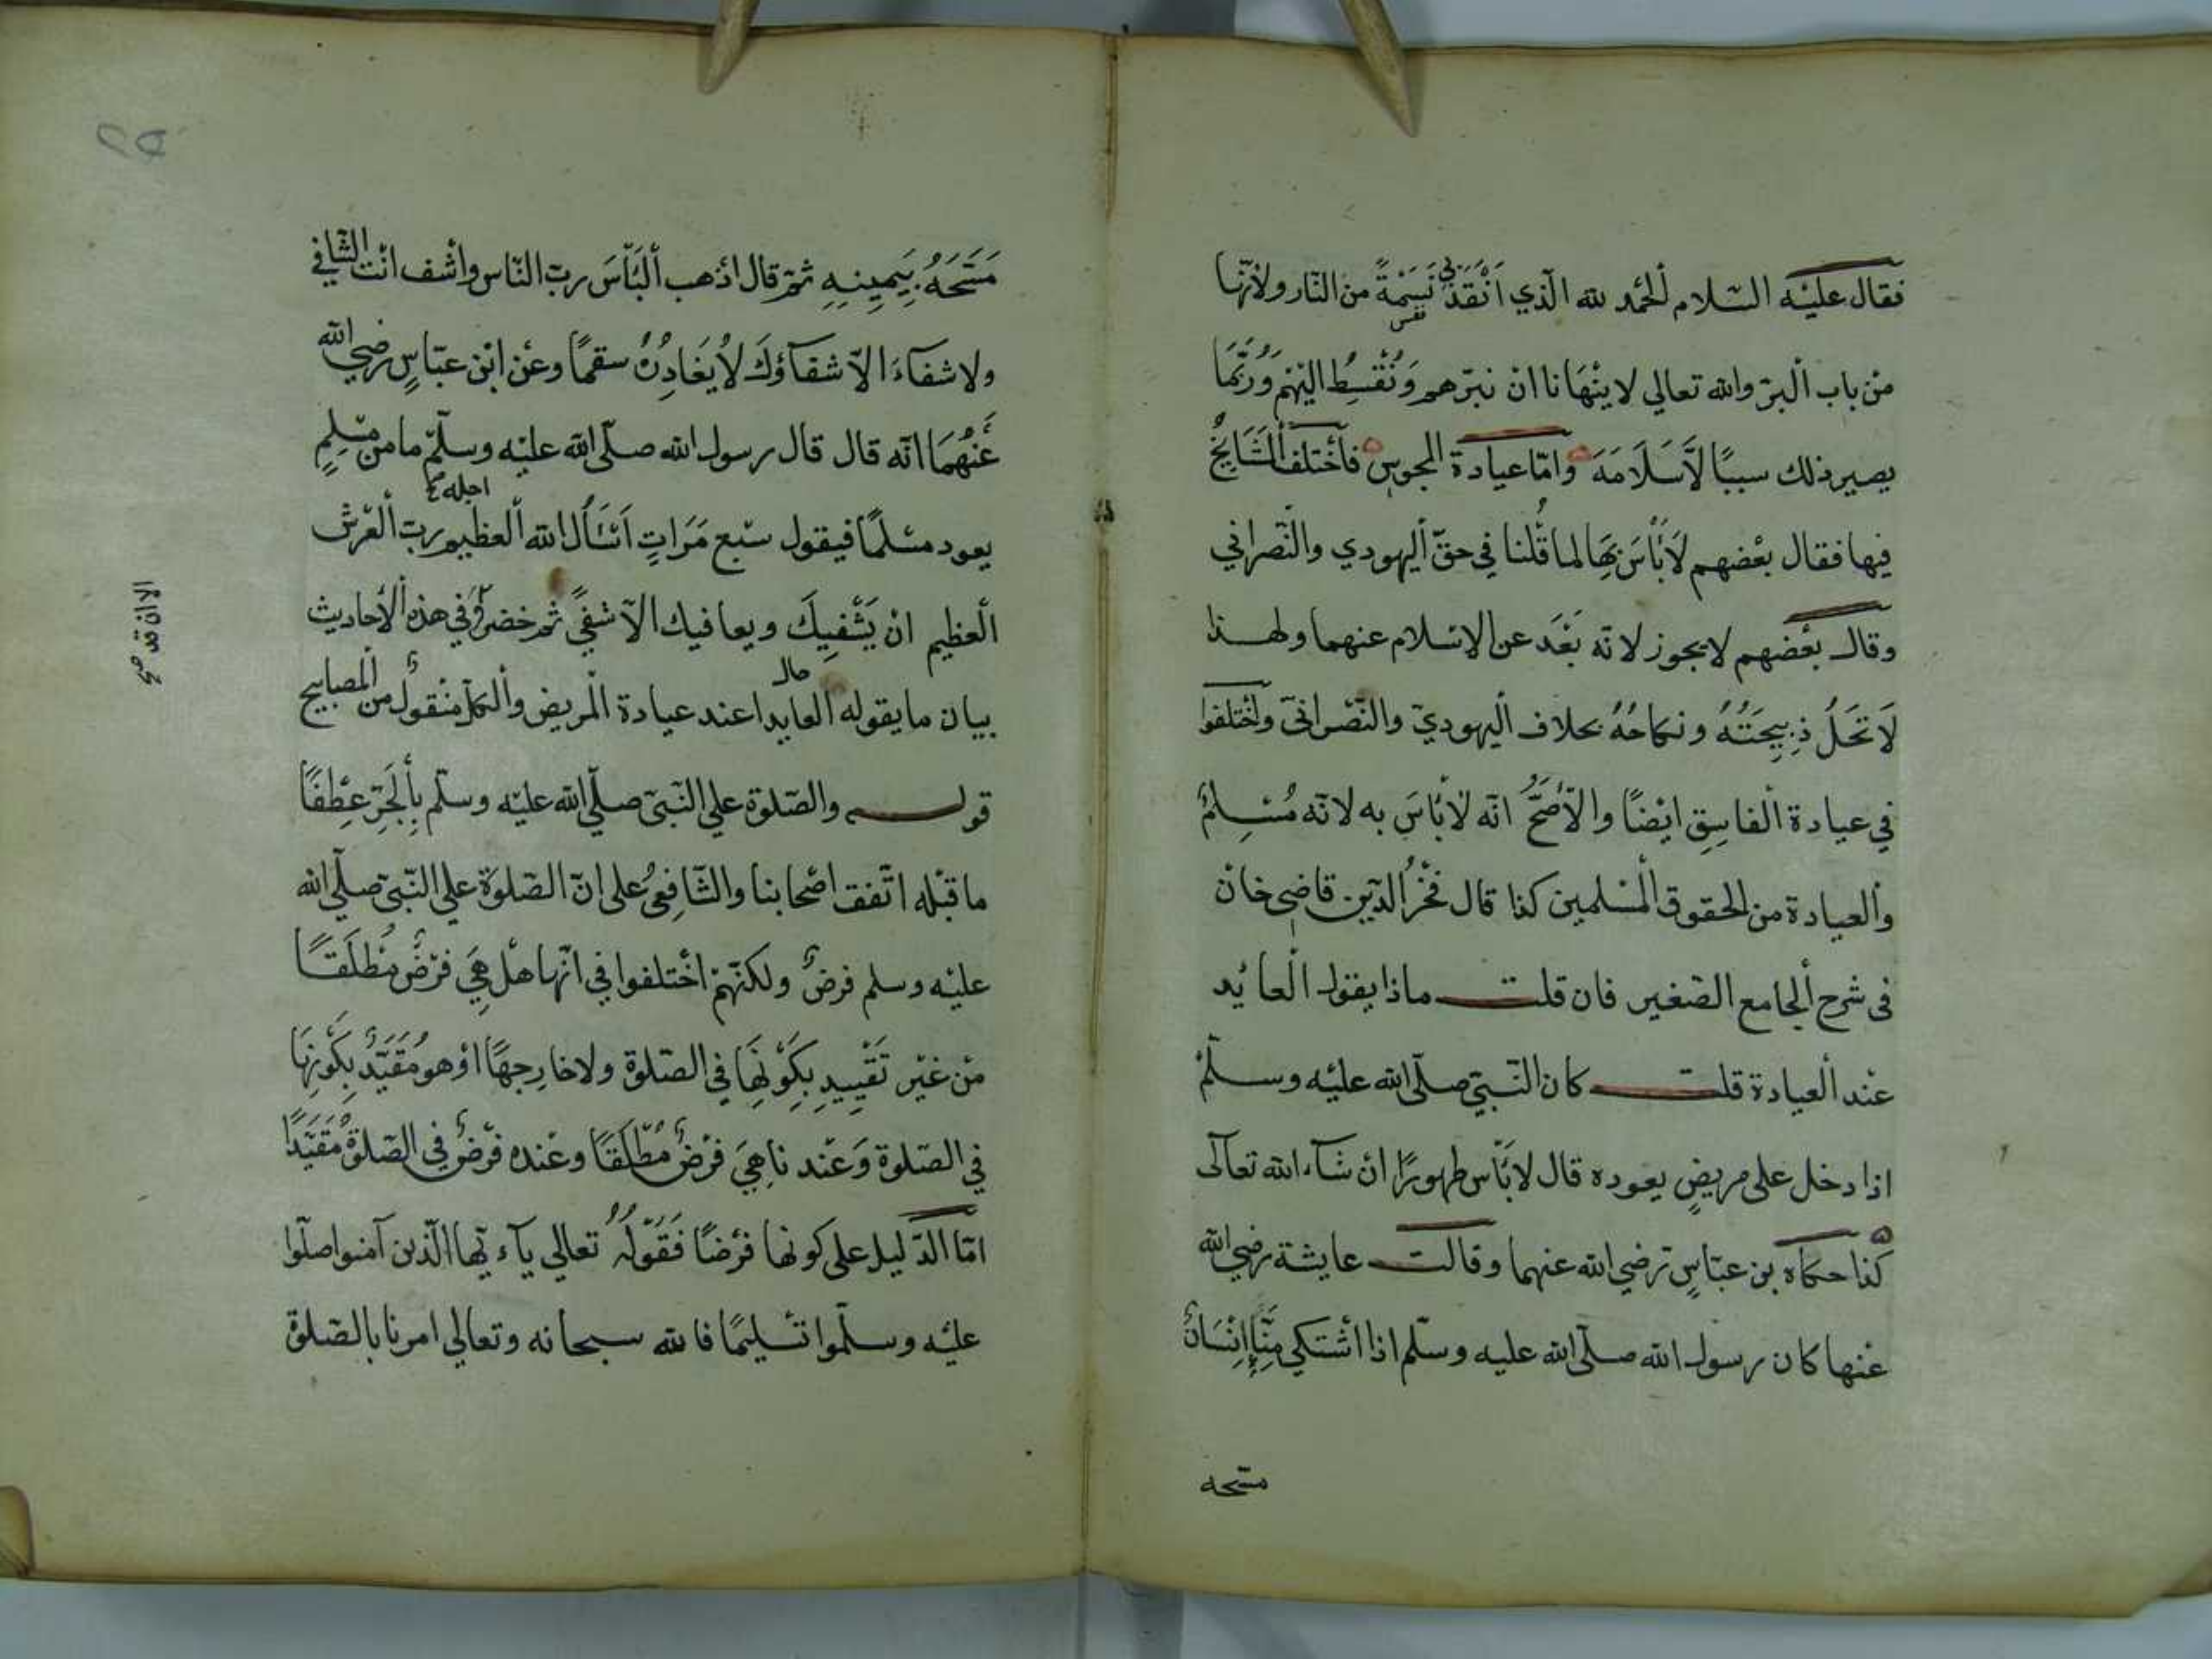 فقال عليْه السّلام ألحمْد لله الّذي اَنْقَذَ بي نَسَمَةً من النّار ولأنّها
نفس
منْ باب ألْبرّ والله تعالي لا ينْهَانا انْ نبرّهم وَنُقْسِطُ اليْهمْ وَرُبَّمَا
يصير ذلك سببًا لاَسَلاَمَهَ وامّا عيادة المجوس فأخْتلف ألْمَشَايخُ
فيها فقال بعْضهم لاَبَأْسَ بِهَا لما قُلنا في حقّ أليهودي والنّصراني
وقال بعْضهم لا يجوز لانّه بَعَدَ عن الاسْلام عنهما ولهذا
لاَ تَحَلُّ ذِبِيحَتُهُ ونكاحُهُ بخلاف أليهوديّ والنّصْرانيّ واخْتلفوا
في عيادة ألْفاسِقِ ايْضًا والاَصَحُّ انّه لاَبَأسَ به لانّه مُسْلِمٌ
وألعيادة من الحقوق ألْمسْلمين كذا قال فخْرُ الدّين قاضي خانْ
في شرح ألجامع الصّغير فان قلت ماذا يقول ألعايُد
عنْد ألْعيادة قلت كان النّبيّ صلّى الله عليْه وسلّمْ
اذا دخل على مريضٍ يعوده قال لابَأْس طهورًا انْ شآء الله تعآلى
كذا حكاه بن عبّاسٍ رضي الله عنهما وقالت عايشة رضي الله
عنْها كان رسول الله صلّى الله عليه وسلّم اذا اشْتكي مِنّا إِنْسَانٌ
مسّحه
مَسَّحَهُ بِيَمِينِهِ ثمّ قال اذهب ألْبَأسَ ربّ النّاس واشْف انْت الشّافي
ولا شفآءَ الاّ شفآؤكَ لاَ يُغَادِرُ سقمًا وعنْ ابْن عبّاسٍ رضي الله
عَنْهُمَا انّه قال قال رسول الله صلّى الله عليْه وسلّم ما منْ مسْلمٍ
اجله
يعود مسْلمًا فيقول سبْع مَرَاتٍ اَسْأَلُ الله ألْعظيم ربّ ألْعرْش
ألْعظيم انْ يَشْفِيكَ ويعافيك الاّ شفي ثمّ حضر وفي هذه ألأحاديث
حال
بيان ما يقوله ألعايد عند عيادة ألْمريض وألكلّ منْقولٌ من ألْمصابيح
قوله والصّلوة علي النّبيّ صلّي الله عليْه وسلّم بِألْجَرّ عِطفًا
ما قبْله اتّفق اصْحابنا والشّافِعيُ على انّ الصّلوَة علي النّبيّ صلّي الله
عليْه وسلم فرضٌ ولكنّهمْ اخْتلفوا في انّها هلْ هِيَ فرْضٌ مُطْلَقًا
منْ غيْر تَقْيِيدٍ بِكَوْنِهَا في الصّلوة ولا خارجهًا اوْ هو مُقَيَّدٌ بِكَوْنِهَا
في الصّلوة وَعنْد ناهِيَ فرْضٌ مُطْلَقًا وعنْده فرْضٌ في الصّلوةُ مُقَيَّدًا
امّا الدّليل على كونها فرْضًا فَقَوْلُهُ تعالي يآءيّها الّذين آمنوا صلّوا
عليْه وسلّموا تسْليمًا فالله سبحانه وتعالي امرنا بالصّلوة
الان قد صح